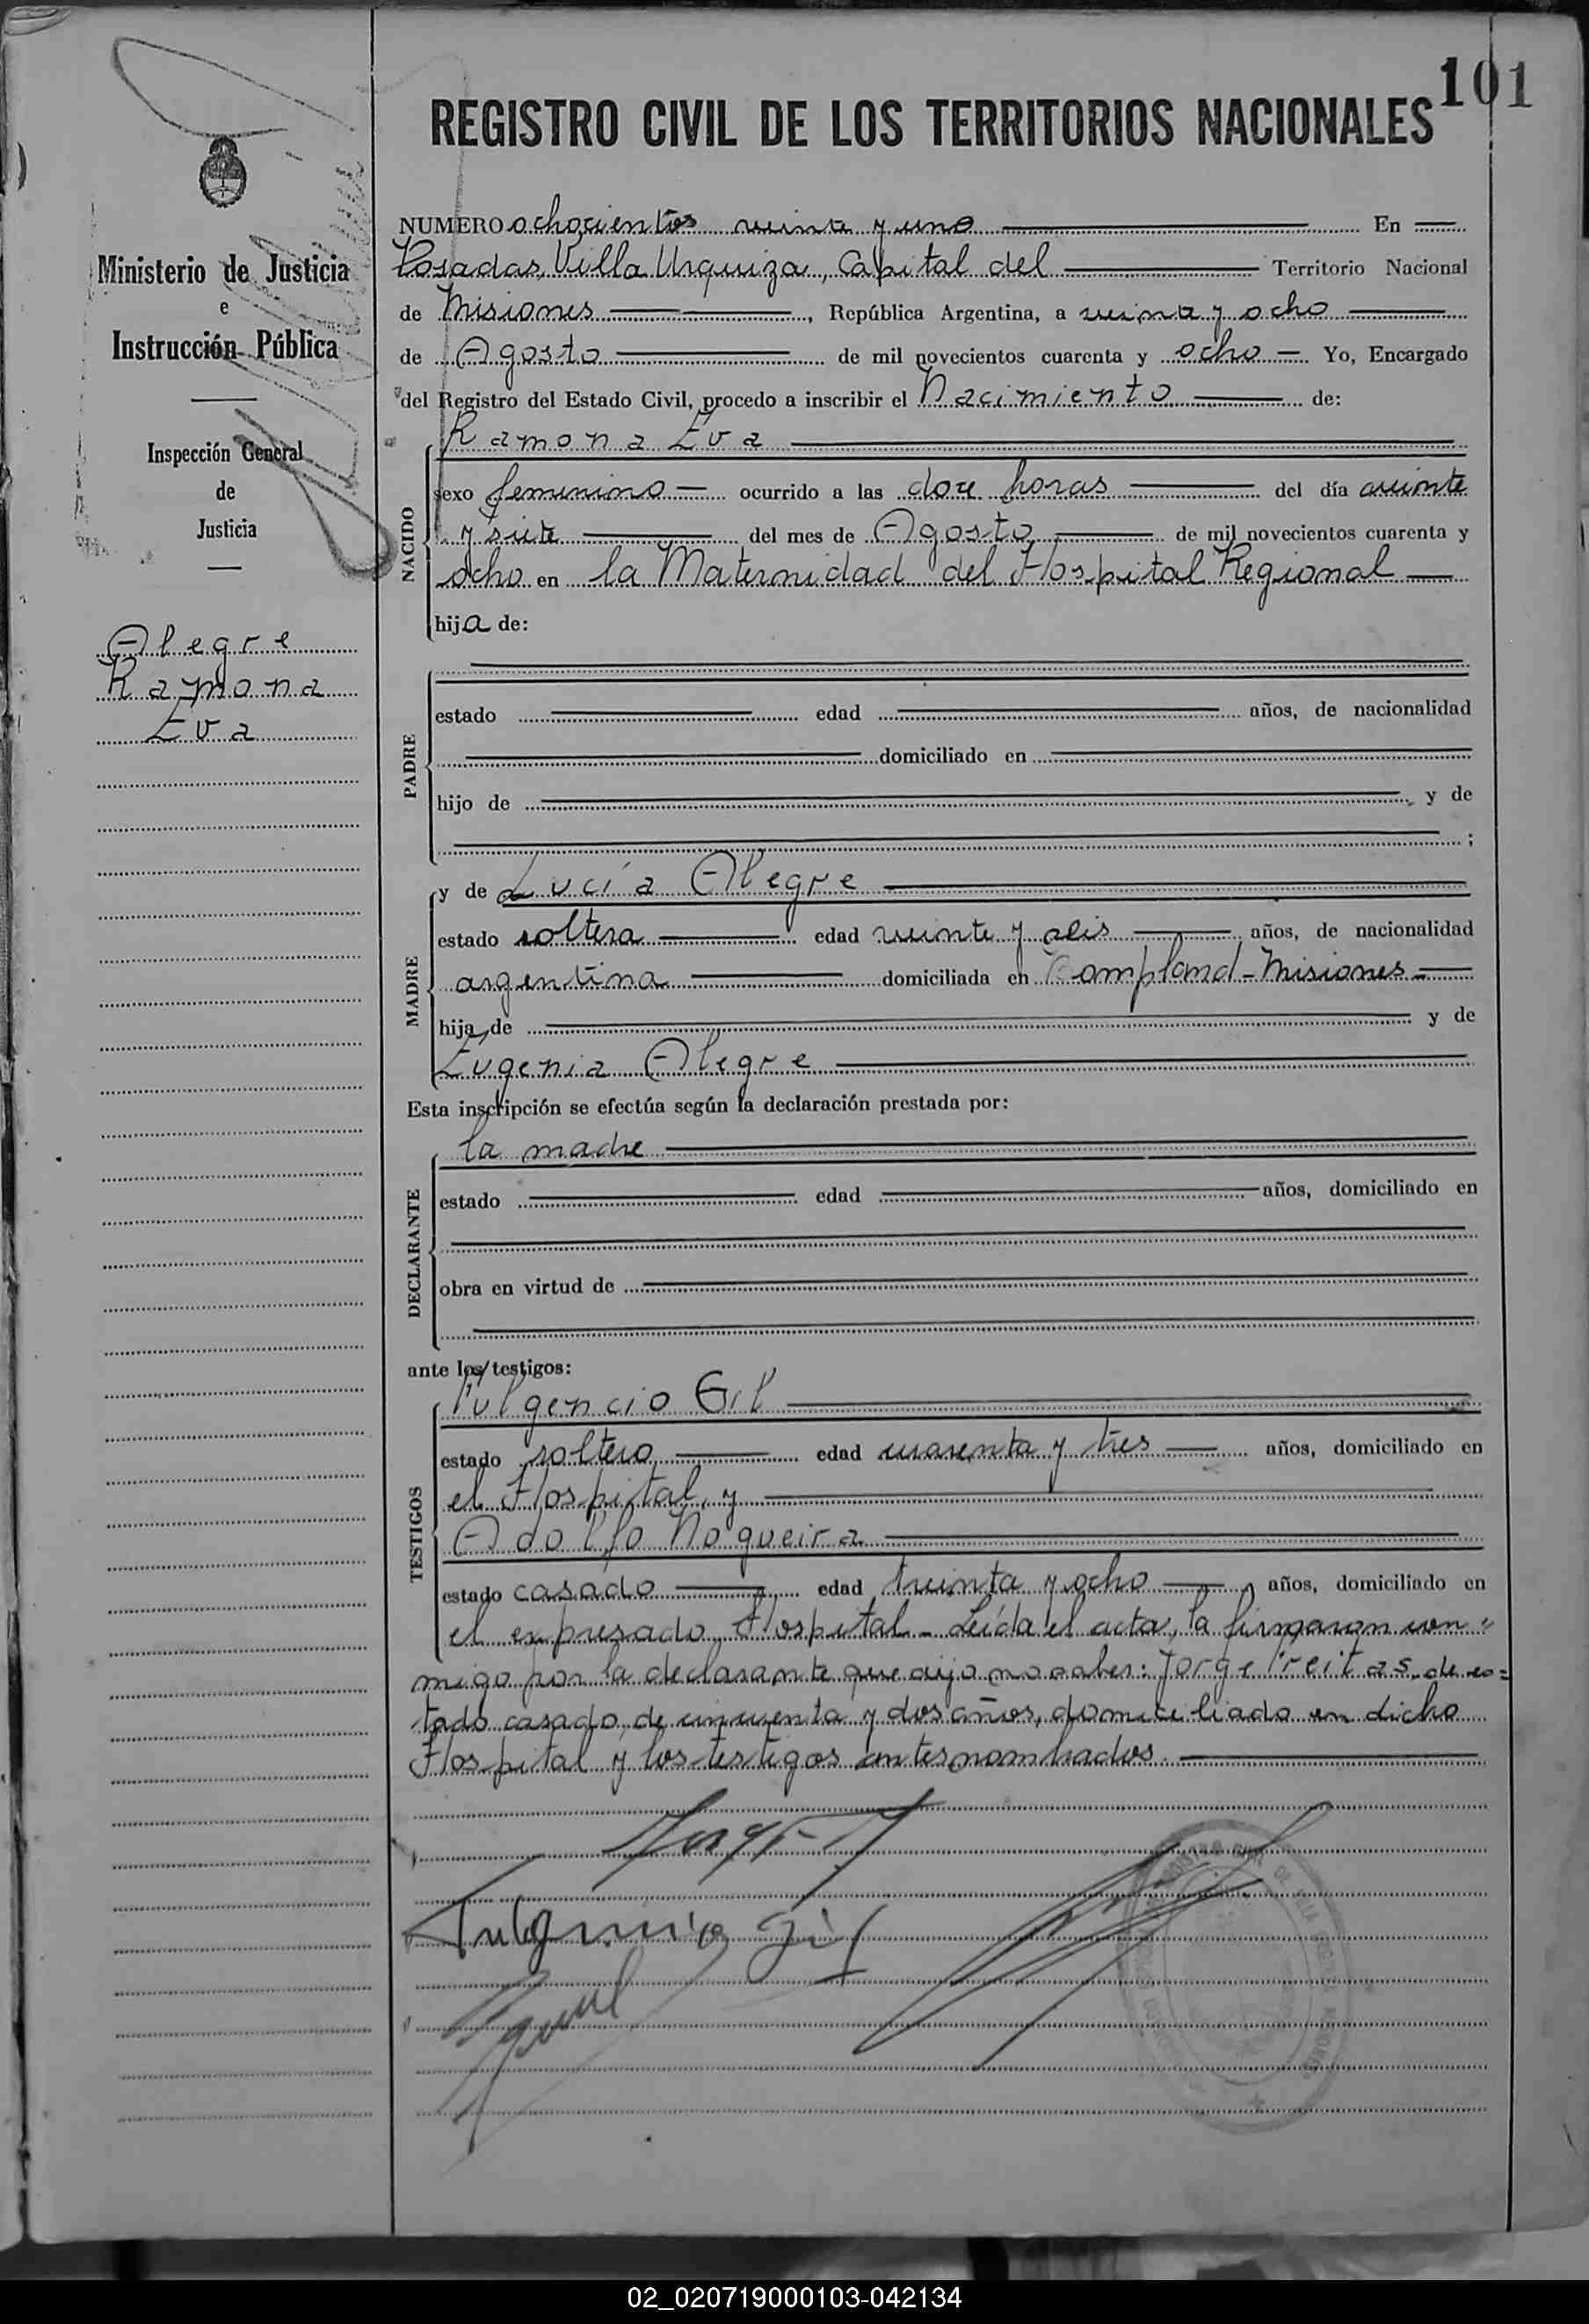 101
REGISTRO CIVIL DE LOS TERRITORIOS NACIONALES
Ministerio de Justicia
e
Instrucción Pública
Inspección General
de
Justicia
Alegre
Ramona
Eva
NUMERO ochocientos veinte y uno En
Posadas, Villa Urquiza, Capital del Territorio Nacional
de Misiones, República Argentina, a veinte y ocho
de Agosto de mil novecientos cuarenta y ocho Yo, Encargado
del Registro del Estado Civil, procedo a inscribir el Nacimiento de:
Ramona Eva
NACIDO
sexo femenino ocurrido a las doce horas del día veinte
y siete del mes de Agosto de mil novecientos cuarenta y
ocho en la Maternidad del Hospital Regional
hija de:
PADRE
estado edad años, de nacionalidad
domiciliado en
hijo de y de
;
MADRE
y de Lucía Alegre
estado soltera edad veinte y seis años, de nacionalidad
argentina domiciliada en Bompland - Misiones
hija de y de
Eugenia Alegre
Esta inscripción se efectúa según la declaración prestada por:
DECLARANTE
la madre
estado edad años, domiciliado en
obra en virtud de
ante los testigos:
TESTIGOS
Fulgencio Gil
estado soltero edad cuarenta y tres años, domiciliado en
el Hospital, y
Adolfo Nogueira
estado casado edad treinta y ocho años, domiciliado en
el expresado Hospital. Leída el acta, la firmaron con=
migo por la declarante que dijo no saber: Jorge Freitas, de es=
tado casado, de cincuenta y dos años, domiciliado en dicho
Hospital y los testigos antes nombrados
Fulgencio Gil
02_020719000103-042134